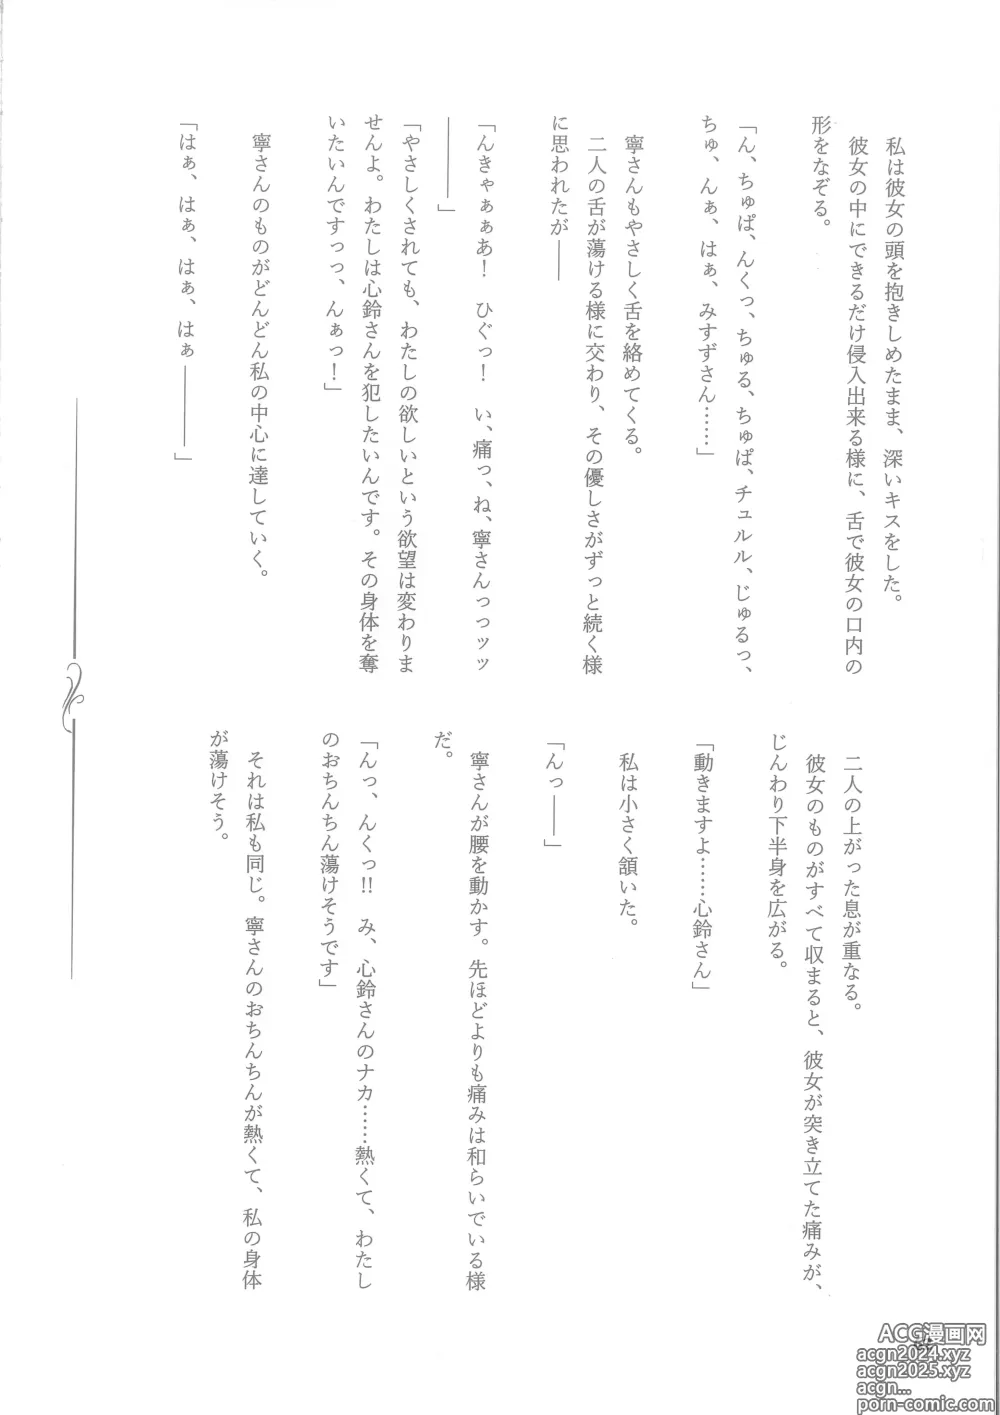 私は彼女の頭を抱きしめたまま、深いキスをした。
彼女の中にできるだけ侵入出来る様に、舌で彼女の口内の
形をなぞる。
「ん、ちゅぱ、んくっ、ちゅる、ちゅぱ、チュルル、じゅるっ、
ちゅ、んぁ、はぁ、みすずさん……」
寧さんもやさしく舌を絡めてくる。
二人の舌が蕩ける様に交わり、その優しさがずっと続く様
に思われたが――
「んきゃぁぁあ！　ひぐっ！　い、痛っ、ね、寧さんっっッッ
――――」
「やさしくされても、わたしの欲しいという欲望は変わりま
せんよ。わたしは心鈴さんを犯したいんです。その身体を奪
いたいんですっっ、んぁっ！」
寧さんのものがどんどん私の中心に達していく。
「はぁ、はぁ、はぁ、はぁ――――」
二人の上がった息が重なる。
彼女のものがすべて収まると、彼女が突き立てた痛みが、
じんわり下半身を広がる。
「動きますよ……心鈴さん」
私は小さく頷いた。
「んっ――」
寧さんが腰を動かす。先ほどよりも痛みは和らいでいる様
だ。
「んっ、んくっ!!　み、心鈴さんのナカ……熱くて、わたし
のおちんちん蕩けそうです」
それは私も同じ。寧さんのおちんちんが熱くて、私の身体
が蕩けそう。
ACG漫画网
acgn2024.xyz
acgn2025.xyz
acgn...
porn-comic.com